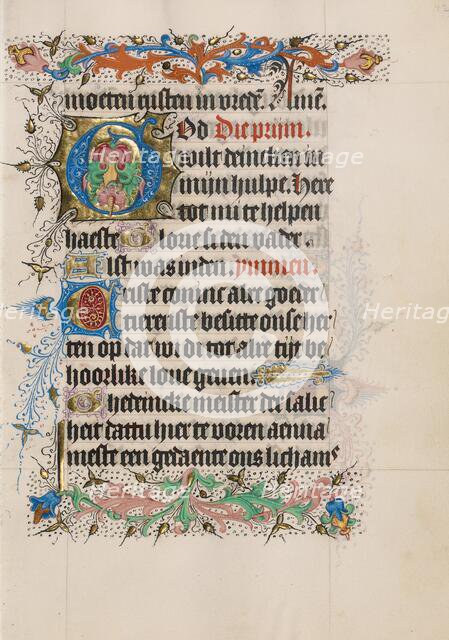 moeten rusten in vrede. Amē.
God Die prijm.
wilt deincken in
mijn hulpe. Here
tot mi te helpen
haeste Gloue si den vader
Alst was inden. ymnen.
coninc alre goeder
tierenste besitte onse her
ten op dat wi di tot alre tijt be
hoorlike loue geuen
Ghedeincke meister der salic
heit dattu hier te voren aenna
meste een gedaente ons lichams